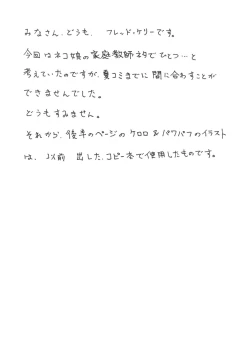 みなさん、どうも、 フレッド・ケリーです。
今回はネコ娘の家庭教師ネタでひとつ…と
考えていたのですが、夏コミまでに間に合わすことが
できませんでした。
どうもすみません。
それから、後半のページのケロロ&パワパフのイラスト
は、以前 出した、コピー本で使用したものです。